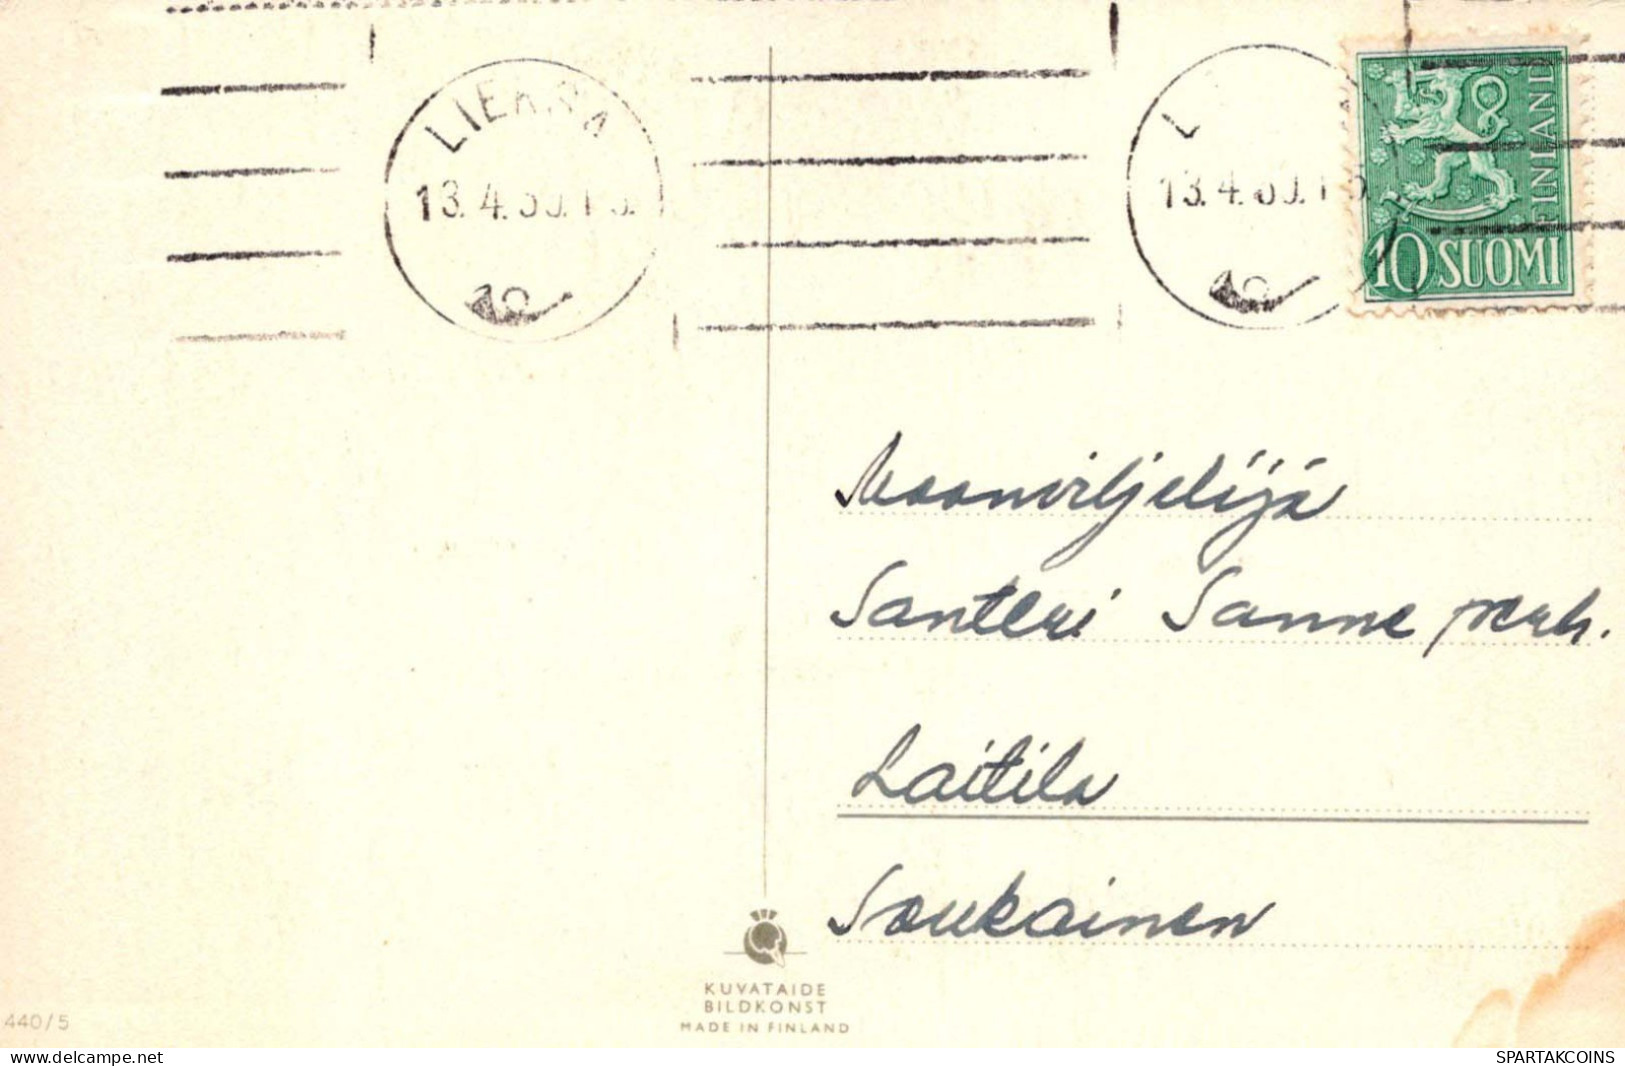 LIEKSA
13.4.
L
13.4.
FINLAND
10 SUOMI
Maanviljelijä
Santeri Sanne perh.
Laitila
Soukainen
KUVATAIDE
BILDKONST
MADE IN FINLAND
440/5
www.delcampe.net
SPARTAKCOINS